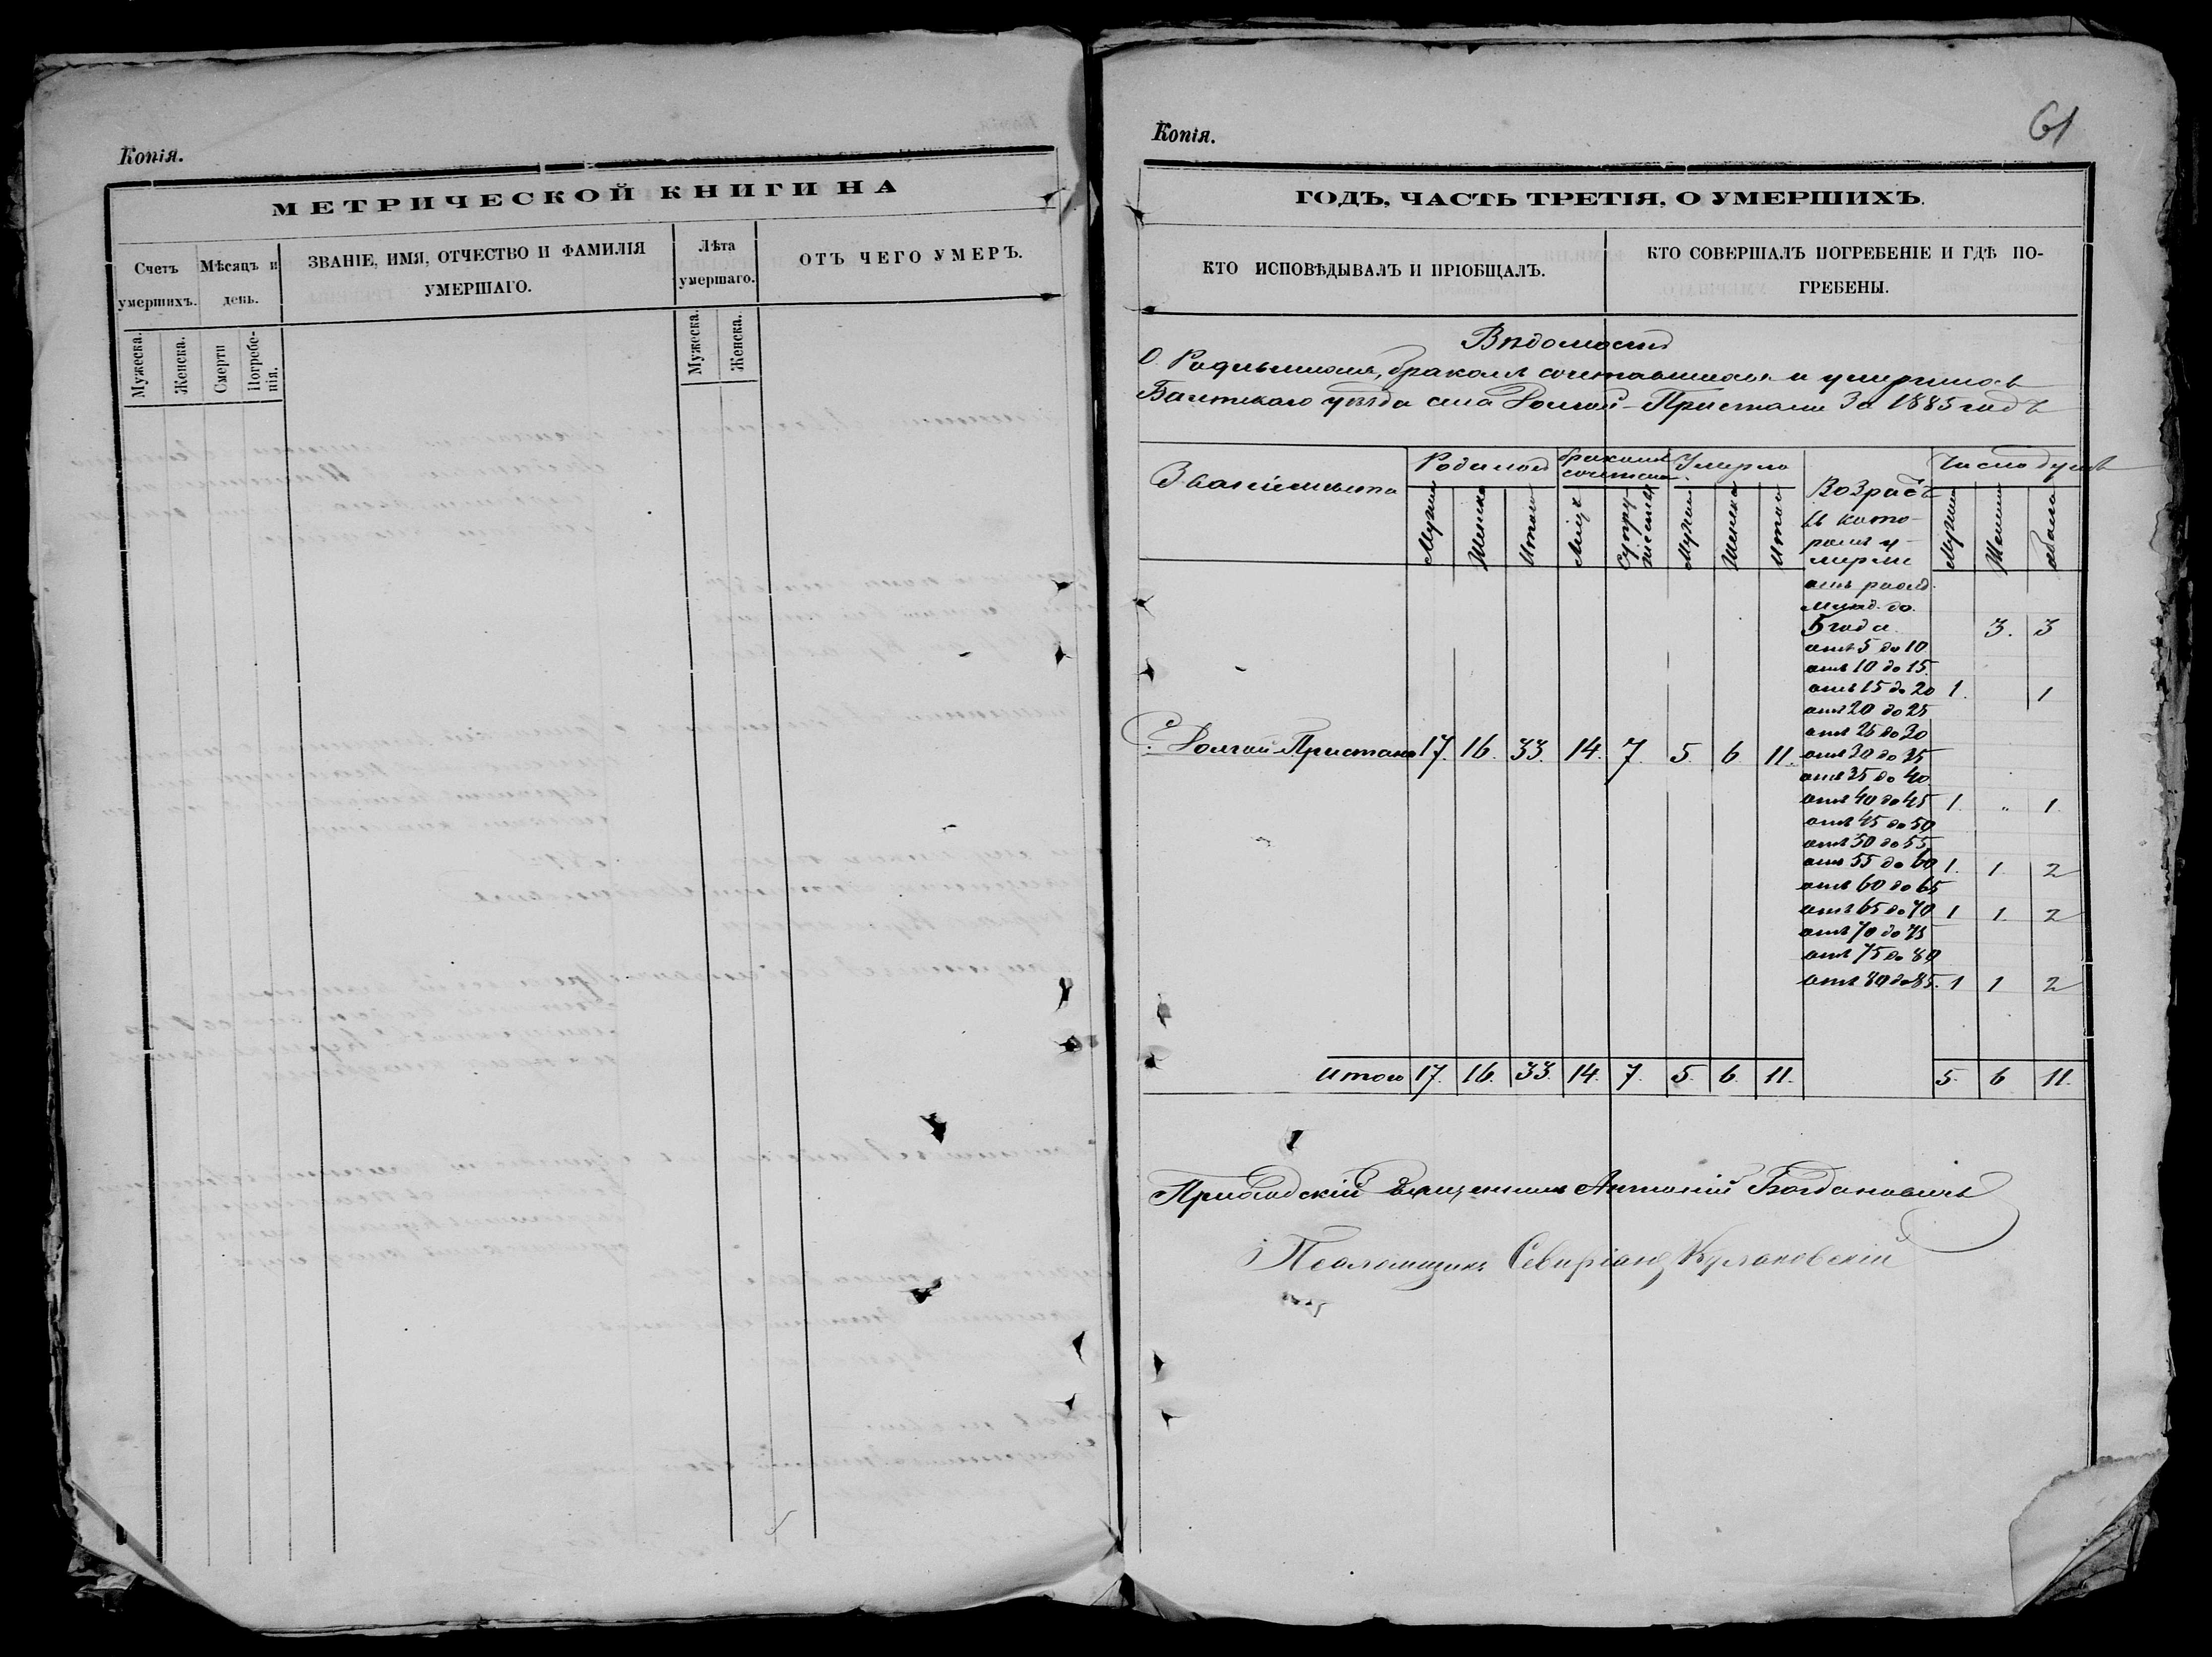 Копія.
МЕТРИЧЕСКОЙ КНИГИ НА
Счетъ умершихъ.
Мѣсяцъ и день.
ЗВАНІЕ, ИМЯ, ОТЧЕСТВО И ФАМИЛІЯ
УМЕРШАГО.
Лѣта умершаго.
ОТЪ ЧЕГО УМЕРЪ.
Мужеска.
Женска.
Смерти
Погребе-
нія.
Мужеска.
Женска.
Копія.
61
ГОДЪ, ЧАСТЬ ТРЕТІЯ, О УМЕРШИХЪ.
КТО ИСПОВѢДЫВАЛЪ И ПРІОБЩАЛЪ.
КТО СОВЕРШАЛЪ ПОГРЕБЕНІЕ И ГДѢ ПО-
ГРЕБЕНЫ.
Вѣдомость
О Родившихся, бракомъ сочетавшихся и умершихъ
Балтскаго уѣзда села Долгой-Пристани За 1885 годъ
Родилось
бракомъ
Умерло
Число душъ
Званіе мѣста
Мужск
Женска
Итого
Лицъ
Супру
жествъ
Мужск
Женска
Итого
Возрастъ
въ кото-
ромъ у-
мерли
Мужск
Женск
обоего
отъ рожд.
до
5 года 3. 3
отъ 5 до 10
отъ 10 до 15
отъ 15 до 20 1. 1
отъ 20 до 25
отъ 25 до 30
С. Долгой Пристани 17. 16. 33. 14. 7. 5. 6 11.
отъ 30 до 35
отъ 35 до 40
отъ 40 до 45 1. „ 1.
отъ 45 до 50
отъ 50 до 55
отъ 55 до 60 1. 1. 2
отъ 60 до 65
отъ 65 до 70 1 1. 2
отъ 70 до 75
отъ 75 до 80
отъ 80 до 85. 1 1 2
Итого 17. 16. 33. 14. 7. 5. 6. 11. 5. 6 11.
Приходскій Священникъ Антоній Богдановичъ
Псаломщикъ Севиріанъ Кулаковскій